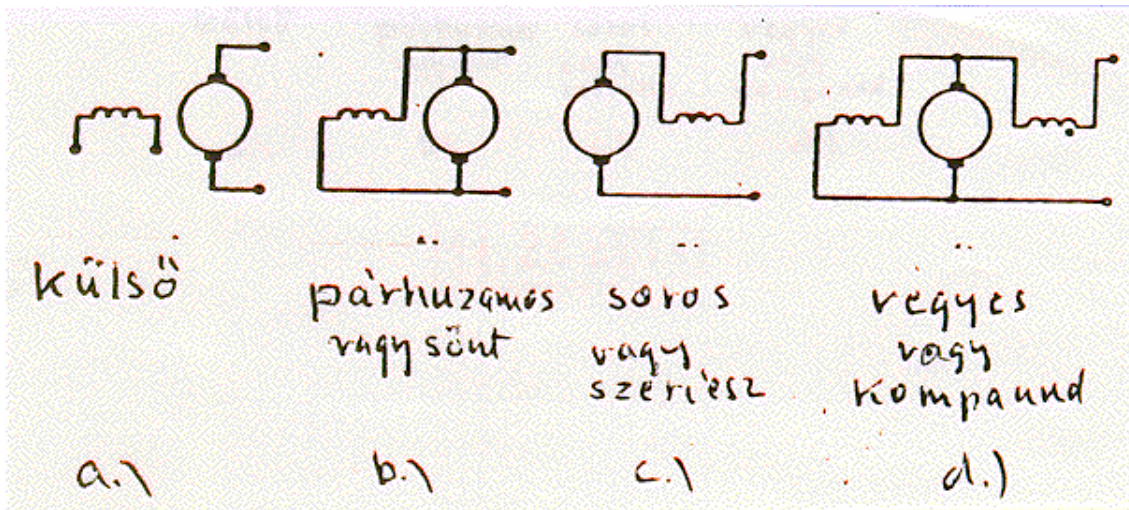 külső
párhuzamos
vagy sönt
soros
vagy
szériesz
vegyes
vagy
kompaund
a.)
b.)
c.)
d.)